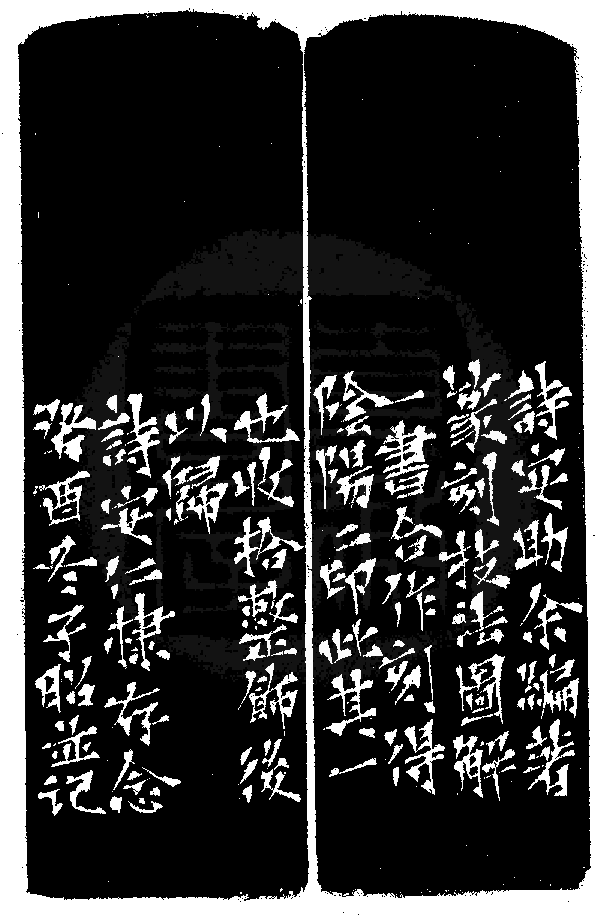 詩安助余編著
篆刻技法圖解
一書合作刻得
陰陽二印此其一
也收拾整飾後
以歸
詩安仁棣存念
癸酉冬子昭並记